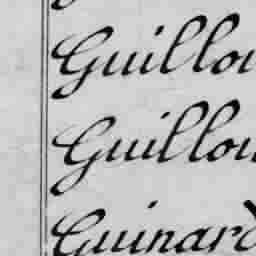 Guillou
Guillou
Guinard